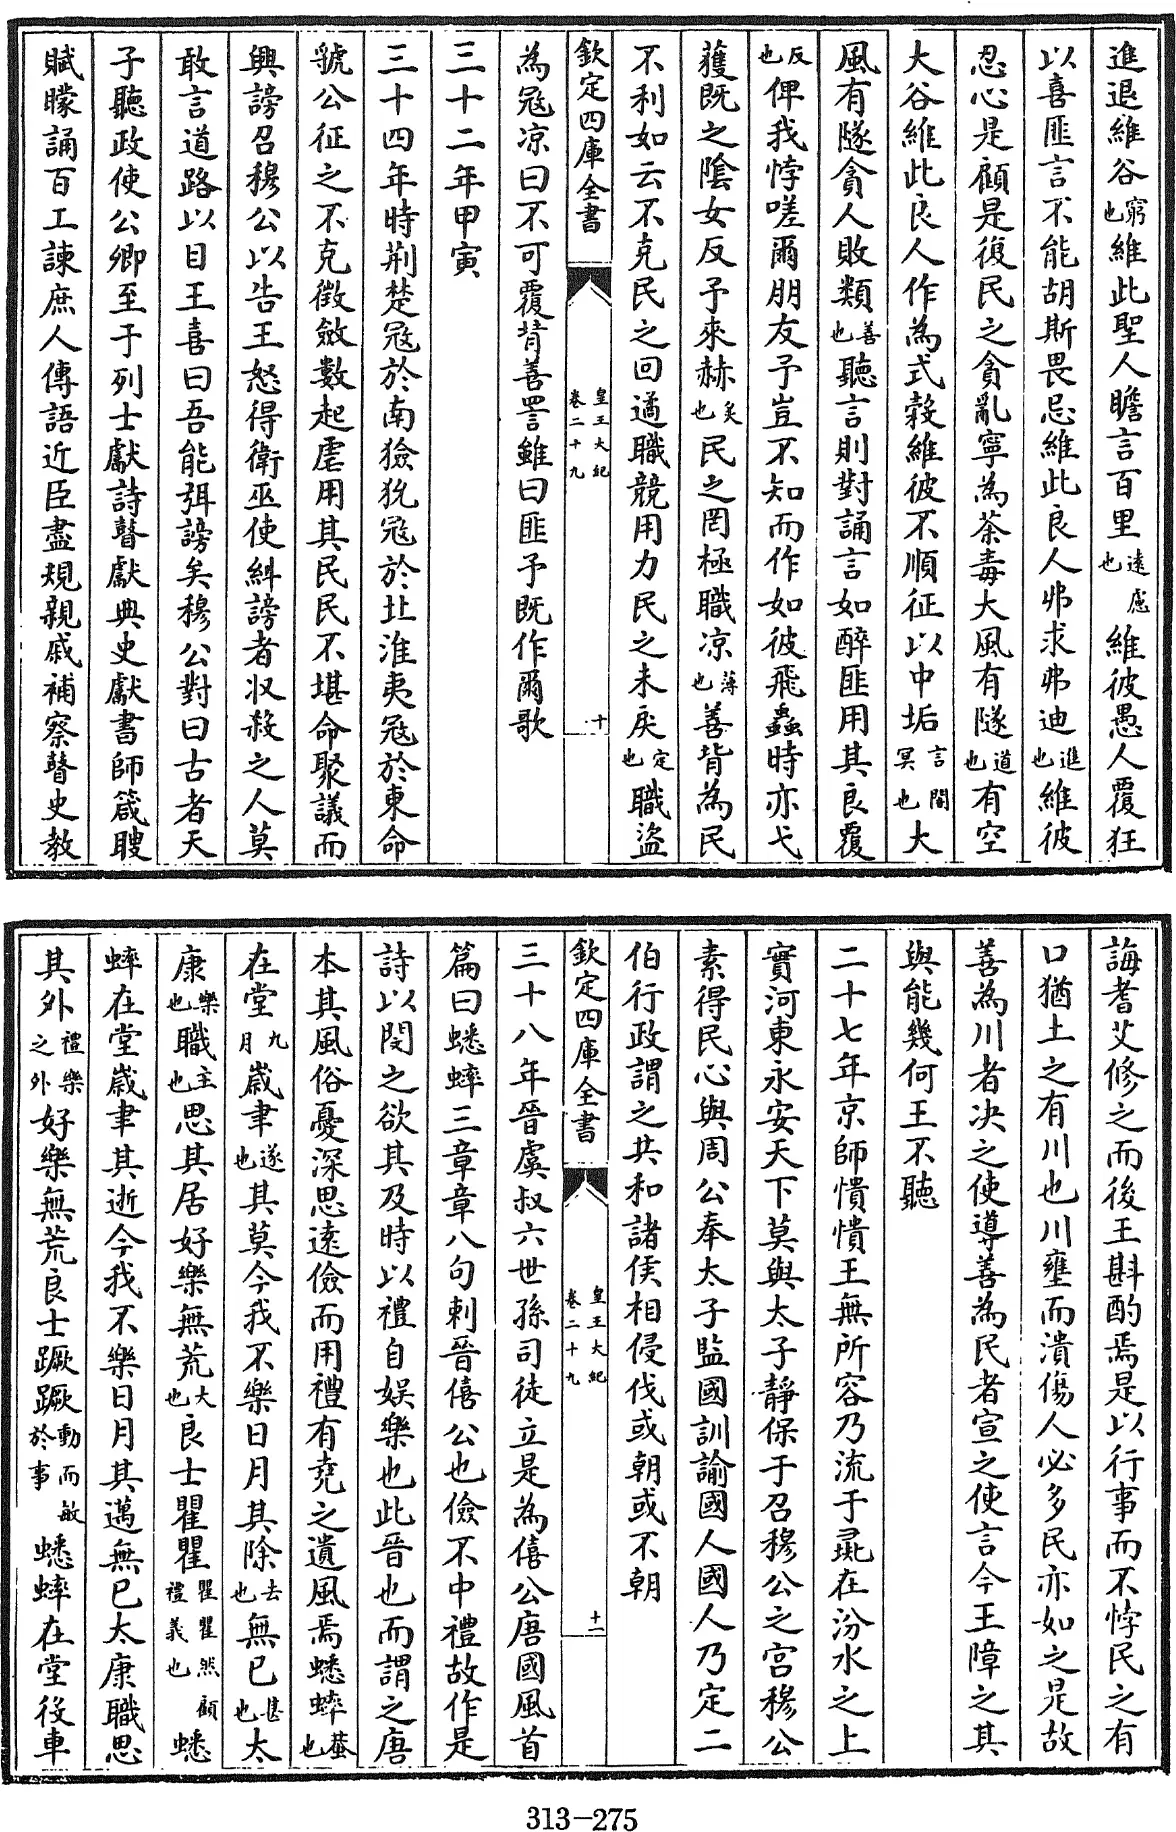 進退維谷窮也維此聖人瞻言百里遠慮也維彼愚人覆狂
以喜匪言不能胡斯畏忌維此良人弗求弗迪進也維彼
忍心是顧是復民之貪亂寧為荼毒大風有隧道也有空
大谷維此良人作為式榖維彼不順征以中垢言闇冥也大
風有隧貪人敗類善也聽言則對誦言如醉匪用其良覆
反也俾我悖嗟爾朋友予豈不知而作如彼飛蟲時亦弋
獲既之陰女反予來赫矣也民之罔極職凉薄也善背為民
不利如云不克民之回遹職競用力民之未戾定也職盜
欽定四庫全書
皇王大紀
卷二十九
十
為冦凉曰不可覆背善詈雖曰匪予既作爾歌
三十二年甲寅
三十四年時荆楚冦於南獫狁冦於北淮夷冦於東命
虢公征之不克徵斂數起虐用其民民不堪命聚議而
興謗召穆公以告王怒得衛巫使糾謗者収殺之人莫
敢言道路以目王喜曰吾能弭謗矣穆公對曰古者天
子聽政使公卿至于列士獻詩瞽獻典史獻書師箴瞍
賦矇誦百工諫庶人傳語近臣盡規親戚補察瞽史教
誨耆艾修之而後王斟酌焉是以行事而不悖民之有
口猶土之有川也川壅而潰傷人必多民亦如之是故
善為川者决之使導善為民者宣之使言今王障之其
與能幾何王不聽
二十七年京師憒憒王無所容乃流于彘在汾水之上
實河東永安天下莫與太子靜保于召穆公之宮穆公
素得民心與周公奉太子監國訓諭國人國人乃定二
伯行政謂之共和諸侯相侵伐或朝或不朝
欽定四庫全書
皇王大紀
卷二十九
十一
三十八年晉虞叔六世孫司徒立是為僖公唐國風首
篇曰蟋蟀三章章八句刺晉僖公也儉不中禮故作是
詩以閔之欲其及時以禮自娱樂也此晉也而謂之唐
本其風俗憂深思遠儉而用禮有堯之遺風焉蟋蟀蛬也
在堂九月歳聿遂也其莫今我不樂日月其除去也無已甚也太
康樂也職主也思其居好樂無荒大也良士瞿瞿瞿瞿然顧禮義也蟋
蟀在堂歳聿其逝今我不樂日月其邁無已太康職思
其外禮樂之外好樂無荒良士蹶蹶動而敏於事蟋蟀在堂役車
313-275